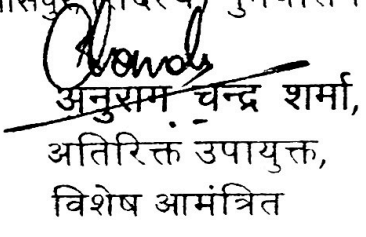 अनुराग चन्द्र शर्मा,
अतिरिक्त उपायुक्त,
विशेष आमंत्रित